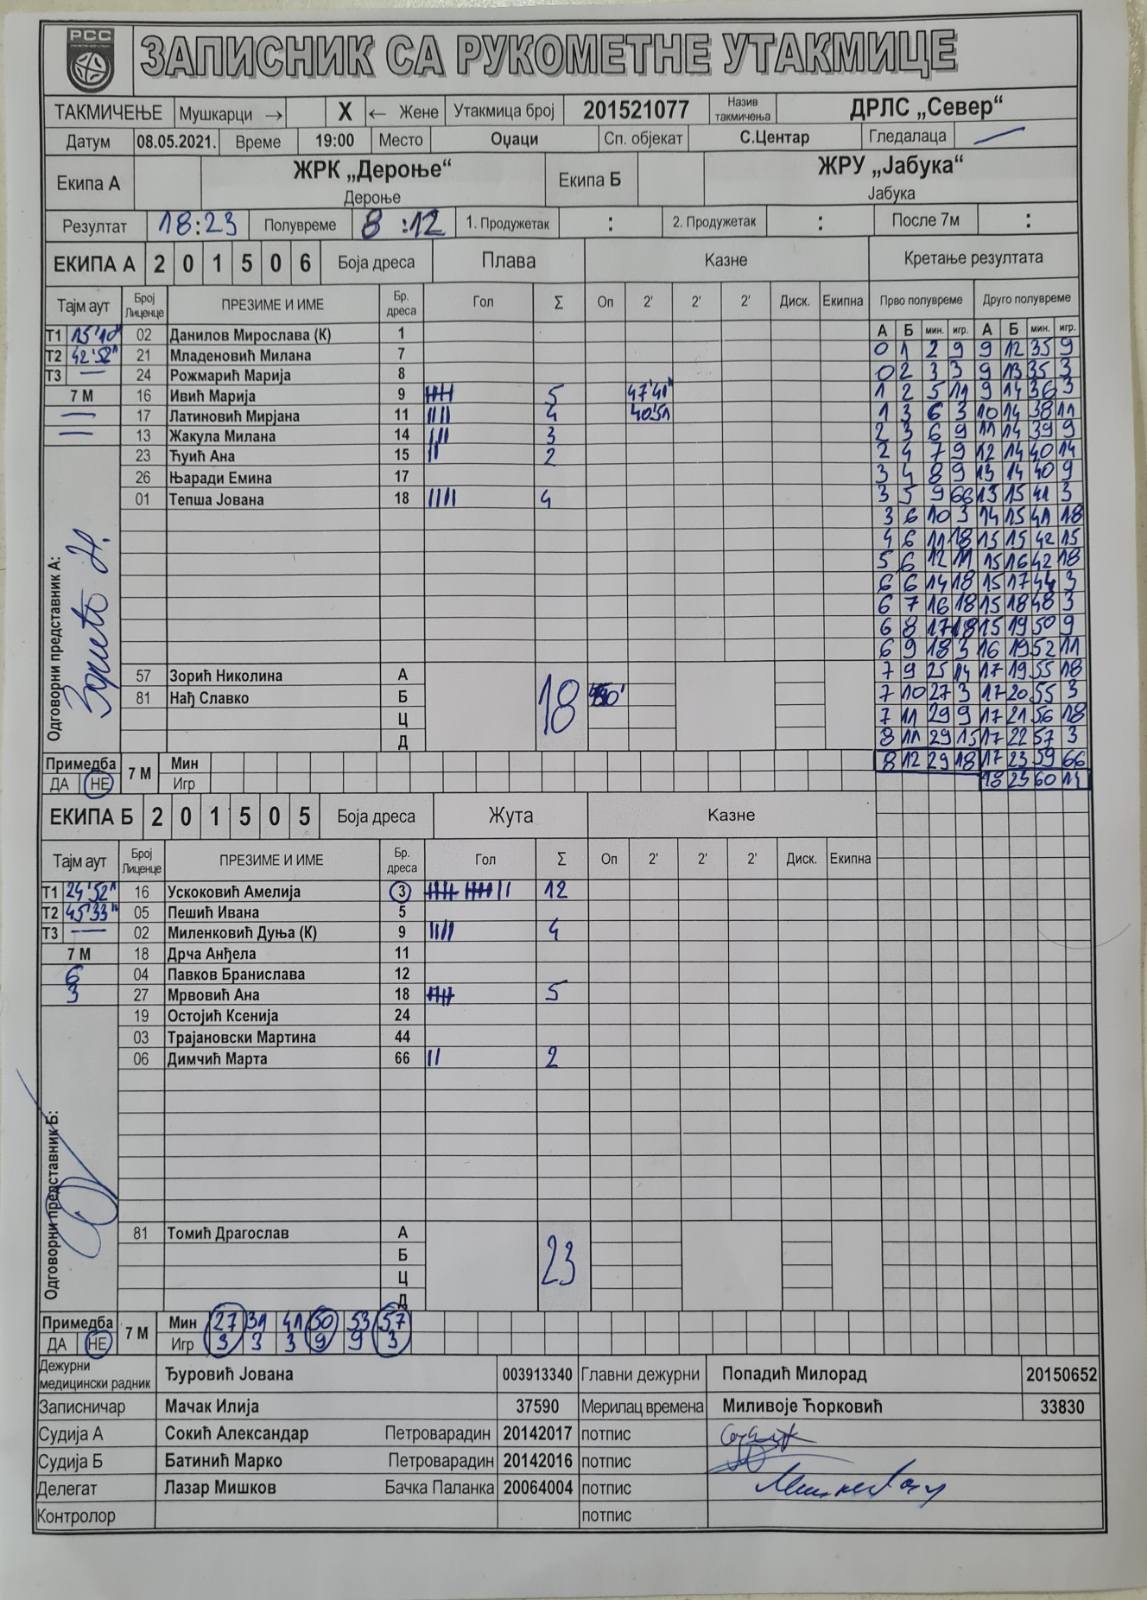 РСС
ЗАПИСНИК СА РУКОМЕТНЕ УТАКМИЦЕ
ТАКМИЧЕЊЕ Мушкарци → X ← Жене Утакмица број 201521077 Назив такмичења ДРЛС „Север“
Датум 08.05.2021. Време 19:00 Место Оџаци Сп. објекат С.Центар Гледалаца
Екипа А ЖРК „Дероње“ Дероње Екипа Б ЖРУ „Јабука“ Јабука
Резултат 18:23 Полувреме 8:12 1. Продужетак : 2. Продужетак : После 7м :
ЕКИПА А 2 0 1 5 0 6 Боја дреса Плава Казне Кретање резултата
Тајм аут Број Лиценце ПРЕЗИМЕ И ИМЕ Бр. дреса Гол Σ Оп 2' 2' 2' Диск. Екипна Прво полувреме Друго полувреме
А Б мин. игр. А Б мин. игр.
Т1 15'10" 02 Данилов Мирослава (К) 1 0 1 2 9 9 12 35 9
Т2 42'52" 21 Младеновић Милана 7 0 2 3 3 9 13 35 3
Т3 — 24 Рожмарић Марија 8 1 2 5 11 9 14 36 3
7 М 16 Ивић Марија 9 5 47'41" 1 3 6 3 10 14 38 11
17 Латиновић Мирјана 11 4 40'51 2 3 6 9 11 14 39 9
13 Жакула Милана 14 3 2 4 7 9 12 14 40 14
23 Ћуић Ана 15 2 3 4 8 9 13 14 40 9
26 Њаради Емина 17 3 5 9 66 13 15 41 3
01 Тепша Јована 18 4 3 6 10 3 14 15 41 18
4 6 11 18 15 15 42 15
5 6 12 11 15 16 42 18
6 6 14 18 15 17 44 3
6 7 16 18 15 18 48 3
6 8 17 18 15 19 50 9
6 9 18 3 16 19 52 11
7 9 25 14 17 19 55 18
7 10 27 3 17 20 55 3
7 11 29 9 17 21 56 18
8 11 29 15 17 22 57 3
8 12 29 18 17 23 59 66
18 23 60 14
Одговорни представник А:
57 Зорић Николина А
81 Нађ Славко Б
Ц
Д
18
Примедба ДА НЕ 7 М Мин
Игр
ЕКИПА Б 2 0 1 5 0 5 Боја дреса Жута Казне
Тајм аут Број Лиценце ПРЕЗИМЕ И ИМЕ Бр. дреса Гол Σ Оп 2' 2' 2' Диск. Екипна
Т1 24'52" 16 Ускоковић Амелија 3 12
Т2 45'33" 05 Пешић Ивана 5
Т3 — 02 Миленковић Дуња (К) 9 4
7 М 18 Дрча Анђела 11
6 04 Павков Бранислава 12
3 27 Мрвовић Ана 18 5
19 Остојић Ксенија 24
03 Трајановски Мартина 44
06 Димчић Марта 66 2
Одговорни представник Б:
81 Томић Драгослав А
Б
Ц
Д
23
Примедба ДА НЕ 7 М Мин 27 31 41 50 53 57
Игр 3 3 3 9 9 3
Дежурни медицински радник Ђуровић Јована 003913340 Главни дежурни Попадић Милорад 20150652
Записничар Мачак Илија 37590 Мерилац времена Миливоје Ћорковић 33830
Судија А Сокић Александар Петроварадин 20142017 потпис
Судија Б Батинић Марко Петроварадин 20142016 потпис
Делегат Лазар Мишков Бачка Паланка 20064004 потпис
Контролор потпис